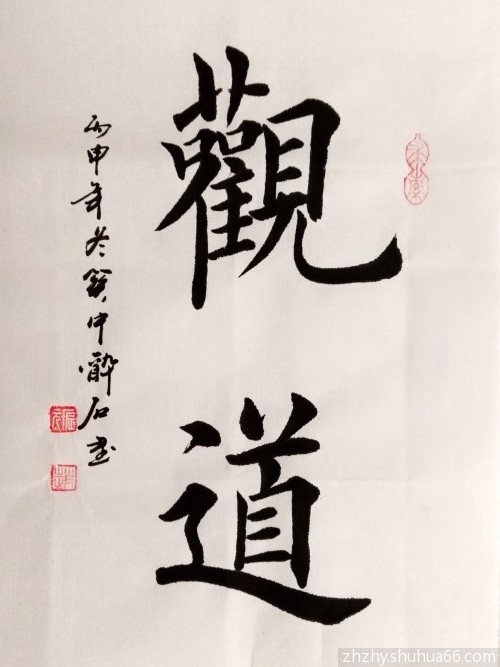 觀道
丙申年冬關中醉石書
zhzhy.shuhua66.com